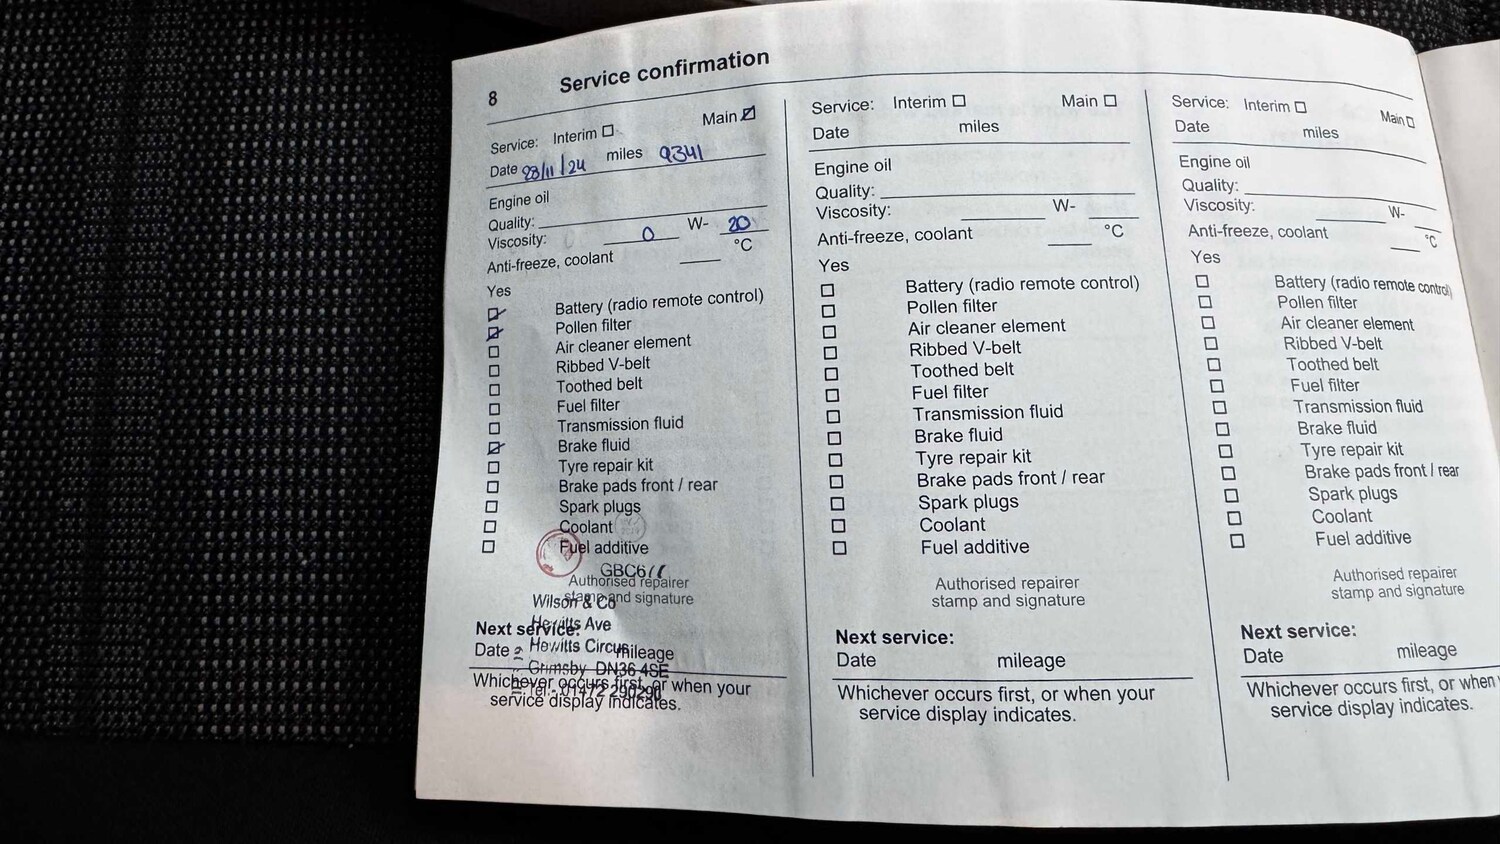 8 Service confirmation
Service: Interim ☐ Main ☑
Date 28/11/24 miles 9341
Engine oil
Quality:
Viscosity: 0 W- 20
Anti-freeze, coolant °C
Yes
☑ Battery (radio remote control)
☑ Pollen filter
☐ Air cleaner element
☐ Ribbed V-belt
☐ Toothed belt
☐ Fuel filter
☐ Transmission fluid
☑ Brake fluid
☐ Tyre repair kit
☐ Brake pads front / rear
☐ Spark plugs
☐ Coolant
☐ Fuel additive
Authorised repairer
stamp and signature
GBC6
Wilson & Co
Hewitts Ave
Hewitts Circus
Grimsby DN36 4SE
Tel:- 01472 290290
Next service:
Date mileage
Whichever occurs first, or when your
service display indicates.
Service: Interim ☐ Main ☐
Date miles
Engine oil
Quality:
Viscosity: W-
Anti-freeze, coolant °C
Yes
☐ Battery (radio remote control)
☐ Pollen filter
☐ Air cleaner element
☐ Ribbed V-belt
☐ Toothed belt
☐ Fuel filter
☐ Transmission fluid
☐ Brake fluid
☐ Tyre repair kit
☐ Brake pads front / rear
☐ Spark plugs
☐ Coolant
☐ Fuel additive
Authorised repairer
stamp and signature
Next service:
Date mileage
Whichever occurs first, or when your
service display indicates.
Service: Interim ☐ Main ☐
Date miles
Engine oil
Quality:
Viscosity: W-
Anti-freeze, coolant °C
Yes
☐ Battery (radio remote control)
☐ Pollen filter
☐ Air cleaner element
☐ Ribbed V-belt
☐ Toothed belt
☐ Fuel filter
☐ Transmission fluid
☐ Brake fluid
☐ Tyre repair kit
☐ Brake pads front / rear
☐ Spark plugs
☐ Coolant
☐ Fuel additive
Authorised repairer
stamp and signature
Next service:
Date mileage
Whichever occurs first, or when
service display indicates.